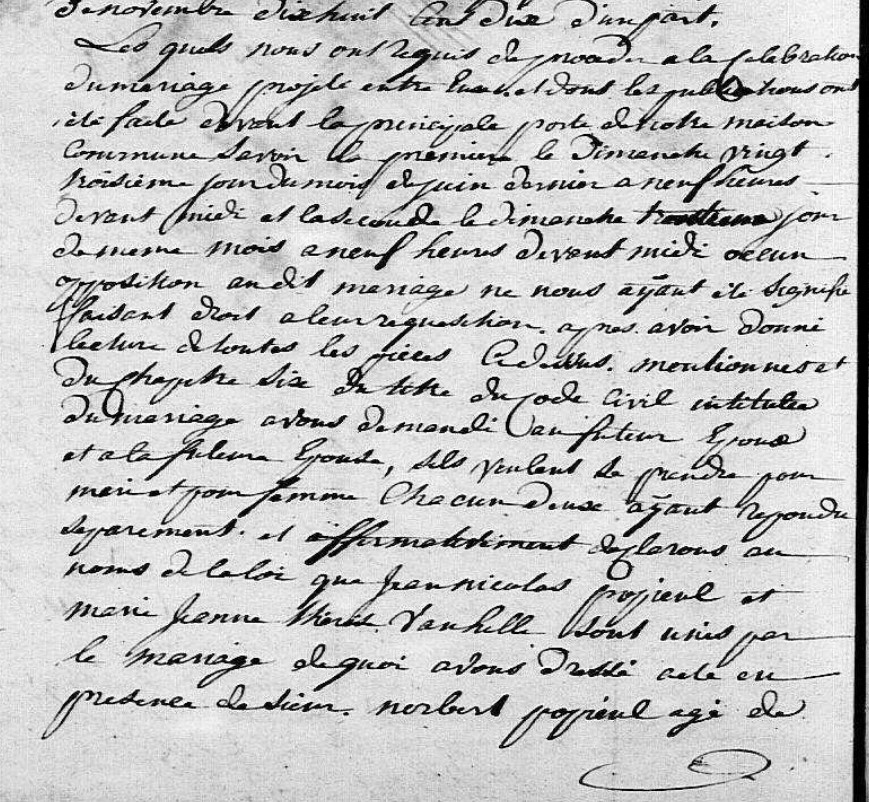 novembre dix huit Cent dix d'un part.
Les quels nous ont requis de proceder a la Celebration
du mariage projeté entre Eux. et dont les publications ont
été faite devent la principale porte de notre maison
Commune Savoir la premiere le Dimanche vingt
troisième jour du mois de juin dernier a neuf heures
devant midi et la seconde le dimanche trentieme jour
de meme mois a neuf heures devent midi occun
opposition audit mariage ne nous ayant été Signifié
faisant droit a leur requesition. apres avoir donné
lecture de toutes les pièces Cidevus. mentionnes et
du Chapitre Six du titre du Code Civil intitulée
du mariage avons demandé au futeur Epoux
et a la future Epouse, sils veulent se prendre pour
mari et pour femme Chacun deux ayant repondu
separement. et affirmativement declarons au
noms de la loi que Jean nicolas popieul et
marie Jeanne Vanhille sont unis par
le mariage de quoi avons Dressé acte en
presence de sieur. norbert popieul agé de